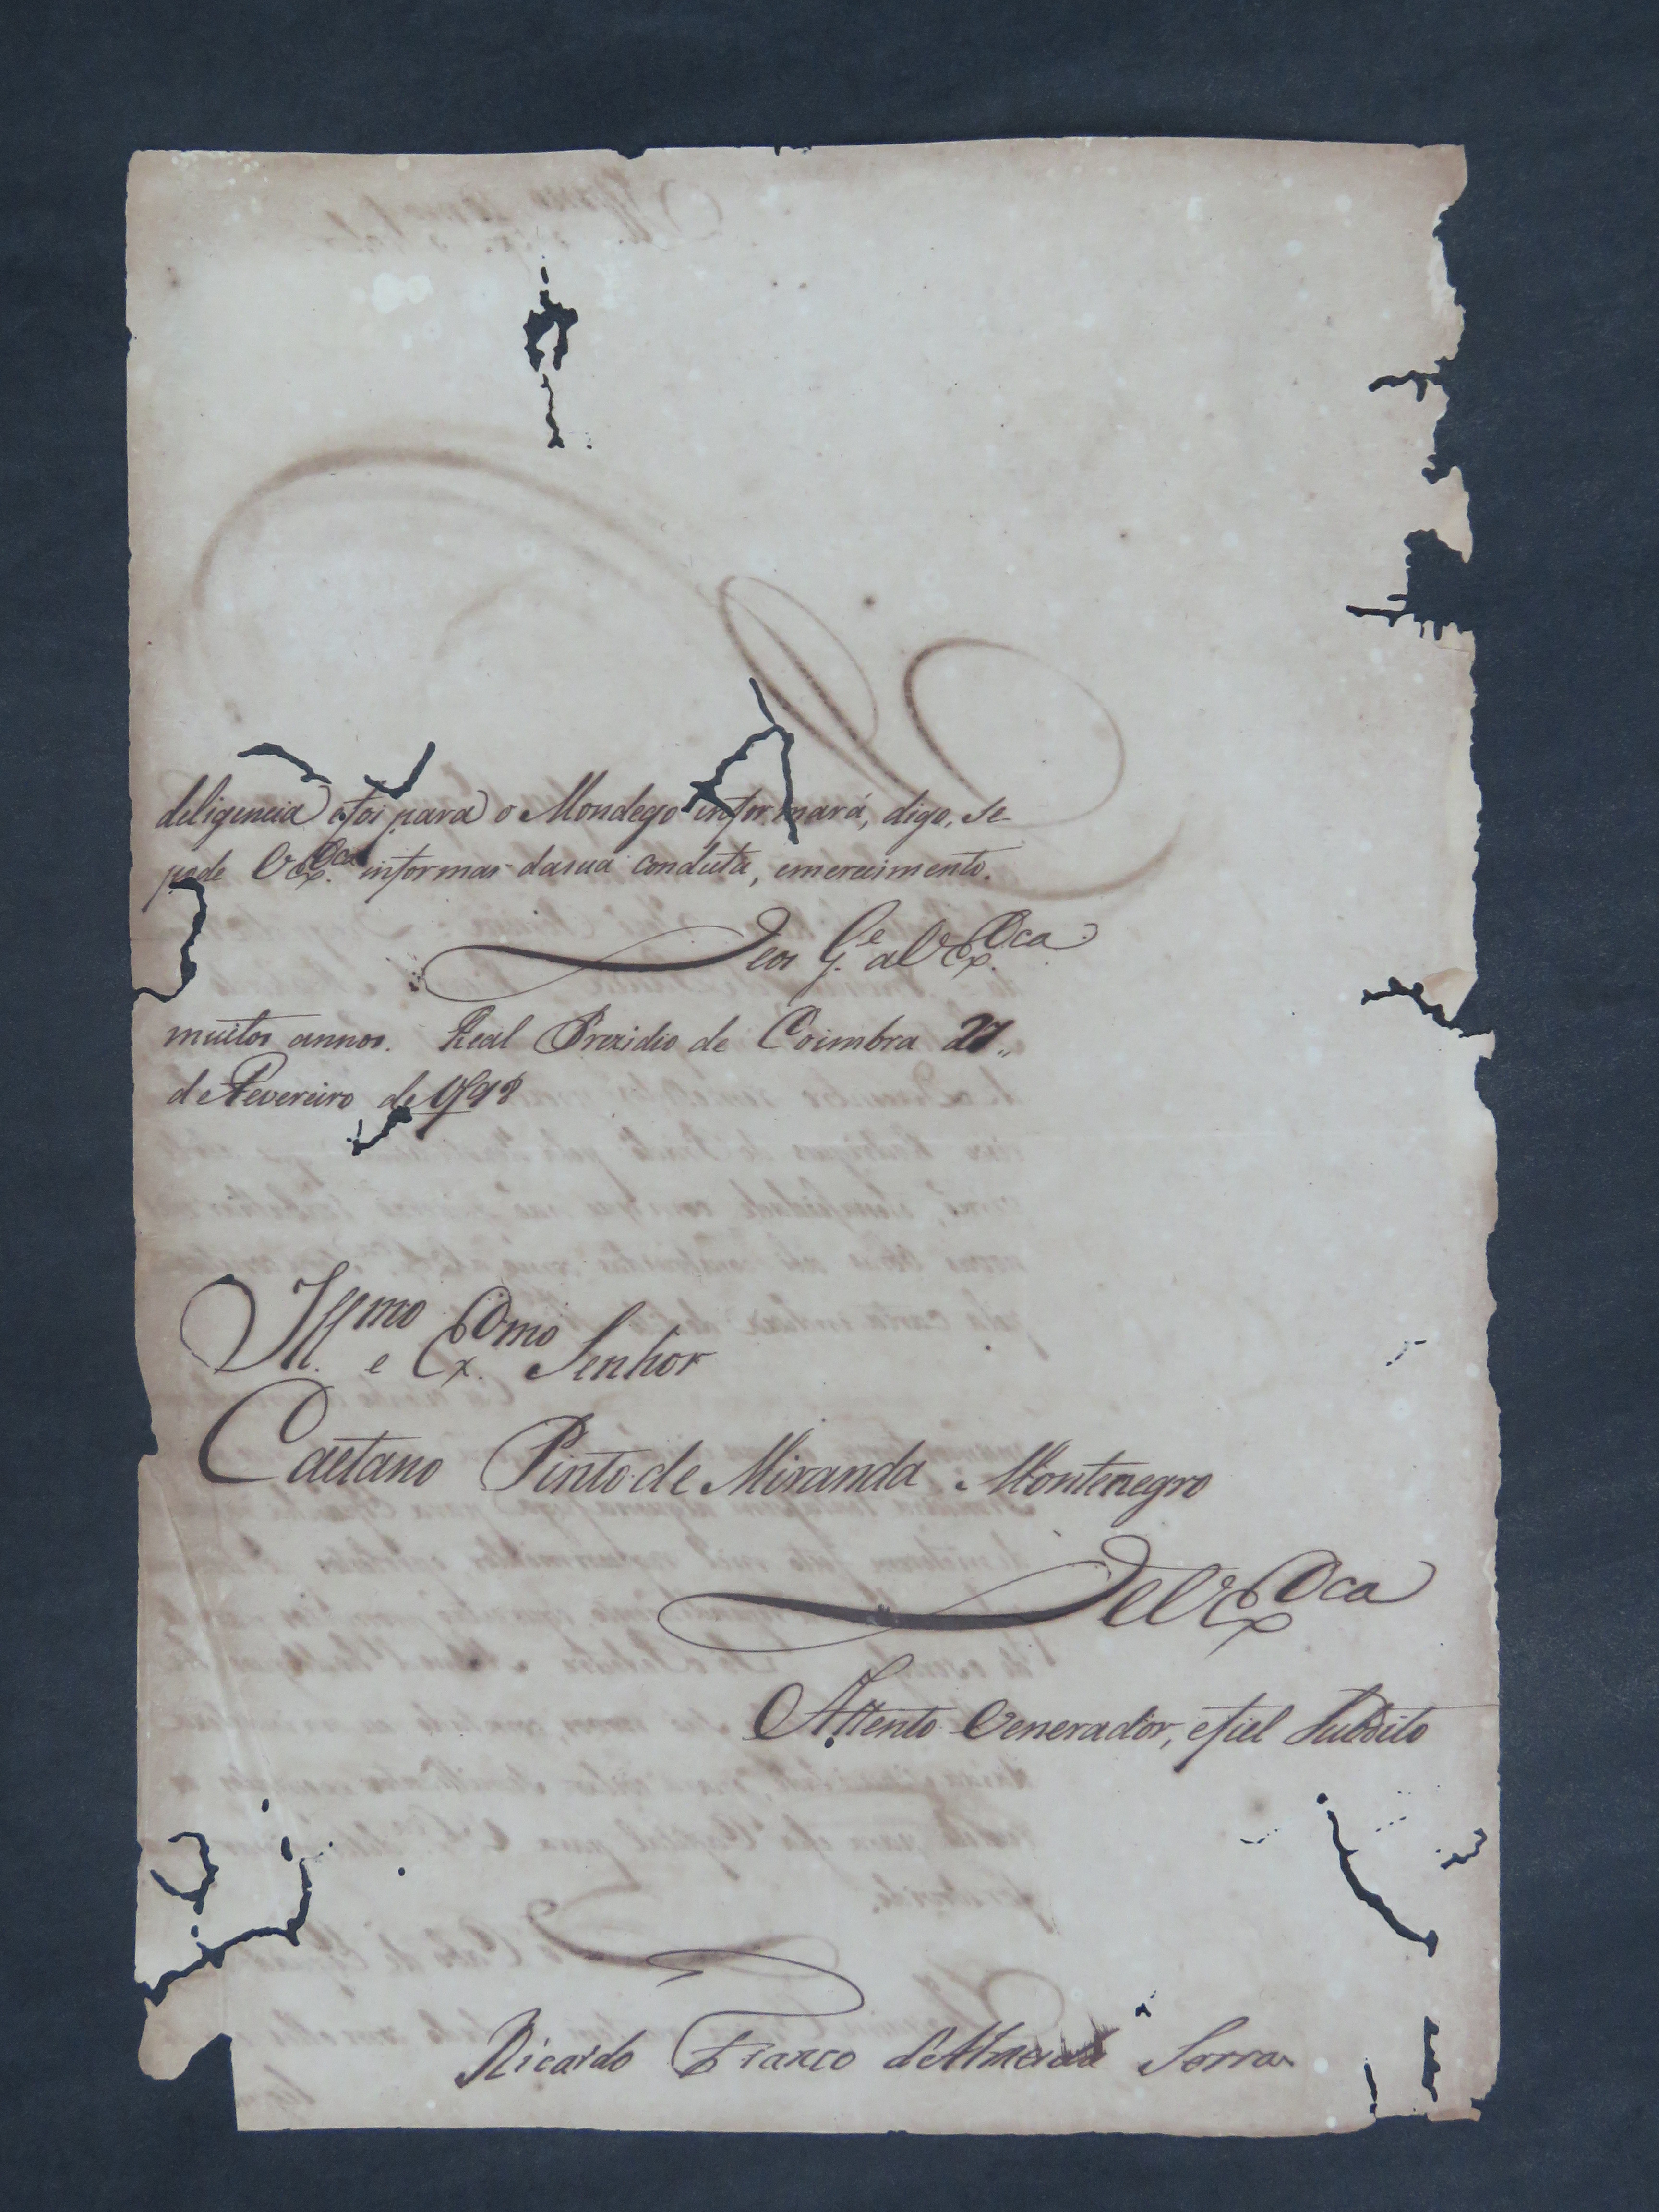 deligencia efoi para o Mondego informará, digo, se
pode V Ex.ca informar dasua conduta, emerecimento.
Deos G.e a V Ex.ca
muitos annos. Real Prezidio de Coimbra 27,,
de Fevereiro de 1798
Ill.mo e Ex.mo Senhor
Caetano Pinto de Miranda Montenegro
De V Ex.ca
Attento Venerador, efiel Subdito
Ricardo Franco d'Almeida Serra